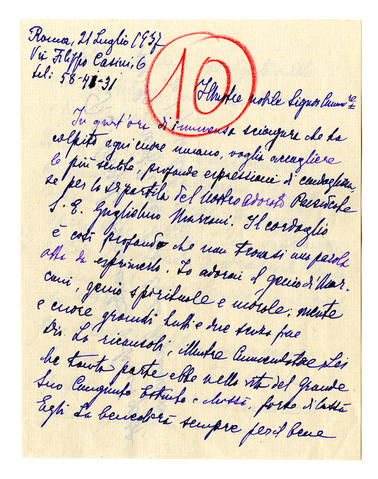 Roma, 21 Luglio 1937
Via Filippo Casini, 6
tel: 58-41-31
10
Illustre nobile Signor
In quest'ora d'immensa sciagura che ha
colpito ogni cuore umano, voglia accogliere
le più sentite, profonde espressioni di condoglian
se per la dipartita del nostro adorato Presidente
S. E. Guglielmo Marconi. Il cordoglio
è così profondo che non trovasi una parola
atta ad esprimerlo. Io adorai il genio di Mar
coni, genio spirituale e morale, mente
e cuore grandi tutti e due senza fine
Dio La riconsoli, illustre Commendatore, Lei
che tanta parte ebbe nella vita del grande
Suo Congiunto Estinto e forse di lassù
Egli La benedirà sempre per il bene